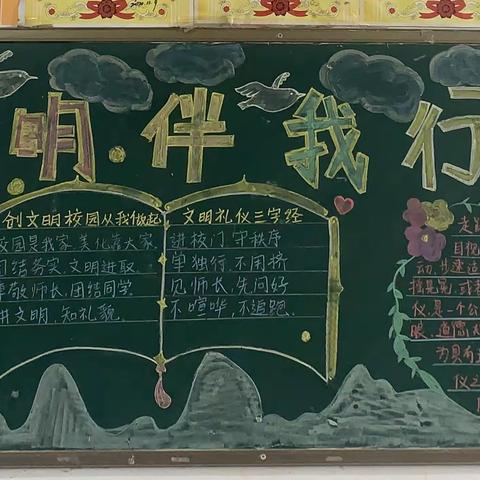 2020.11.9
明伴我行
创文明校园从我做起
校园是我家,美化靠大家
团结务实,文明进取
尊敬师长,团结同学
讲文明,知礼貌
文明礼仪三字经
进校门,守秩序
单独行,不用挤
见师长,先问好
不喧哗,不追跑
走路
目视
动,步速适
仪,是一个公
眼,道儒
为具有
仪之